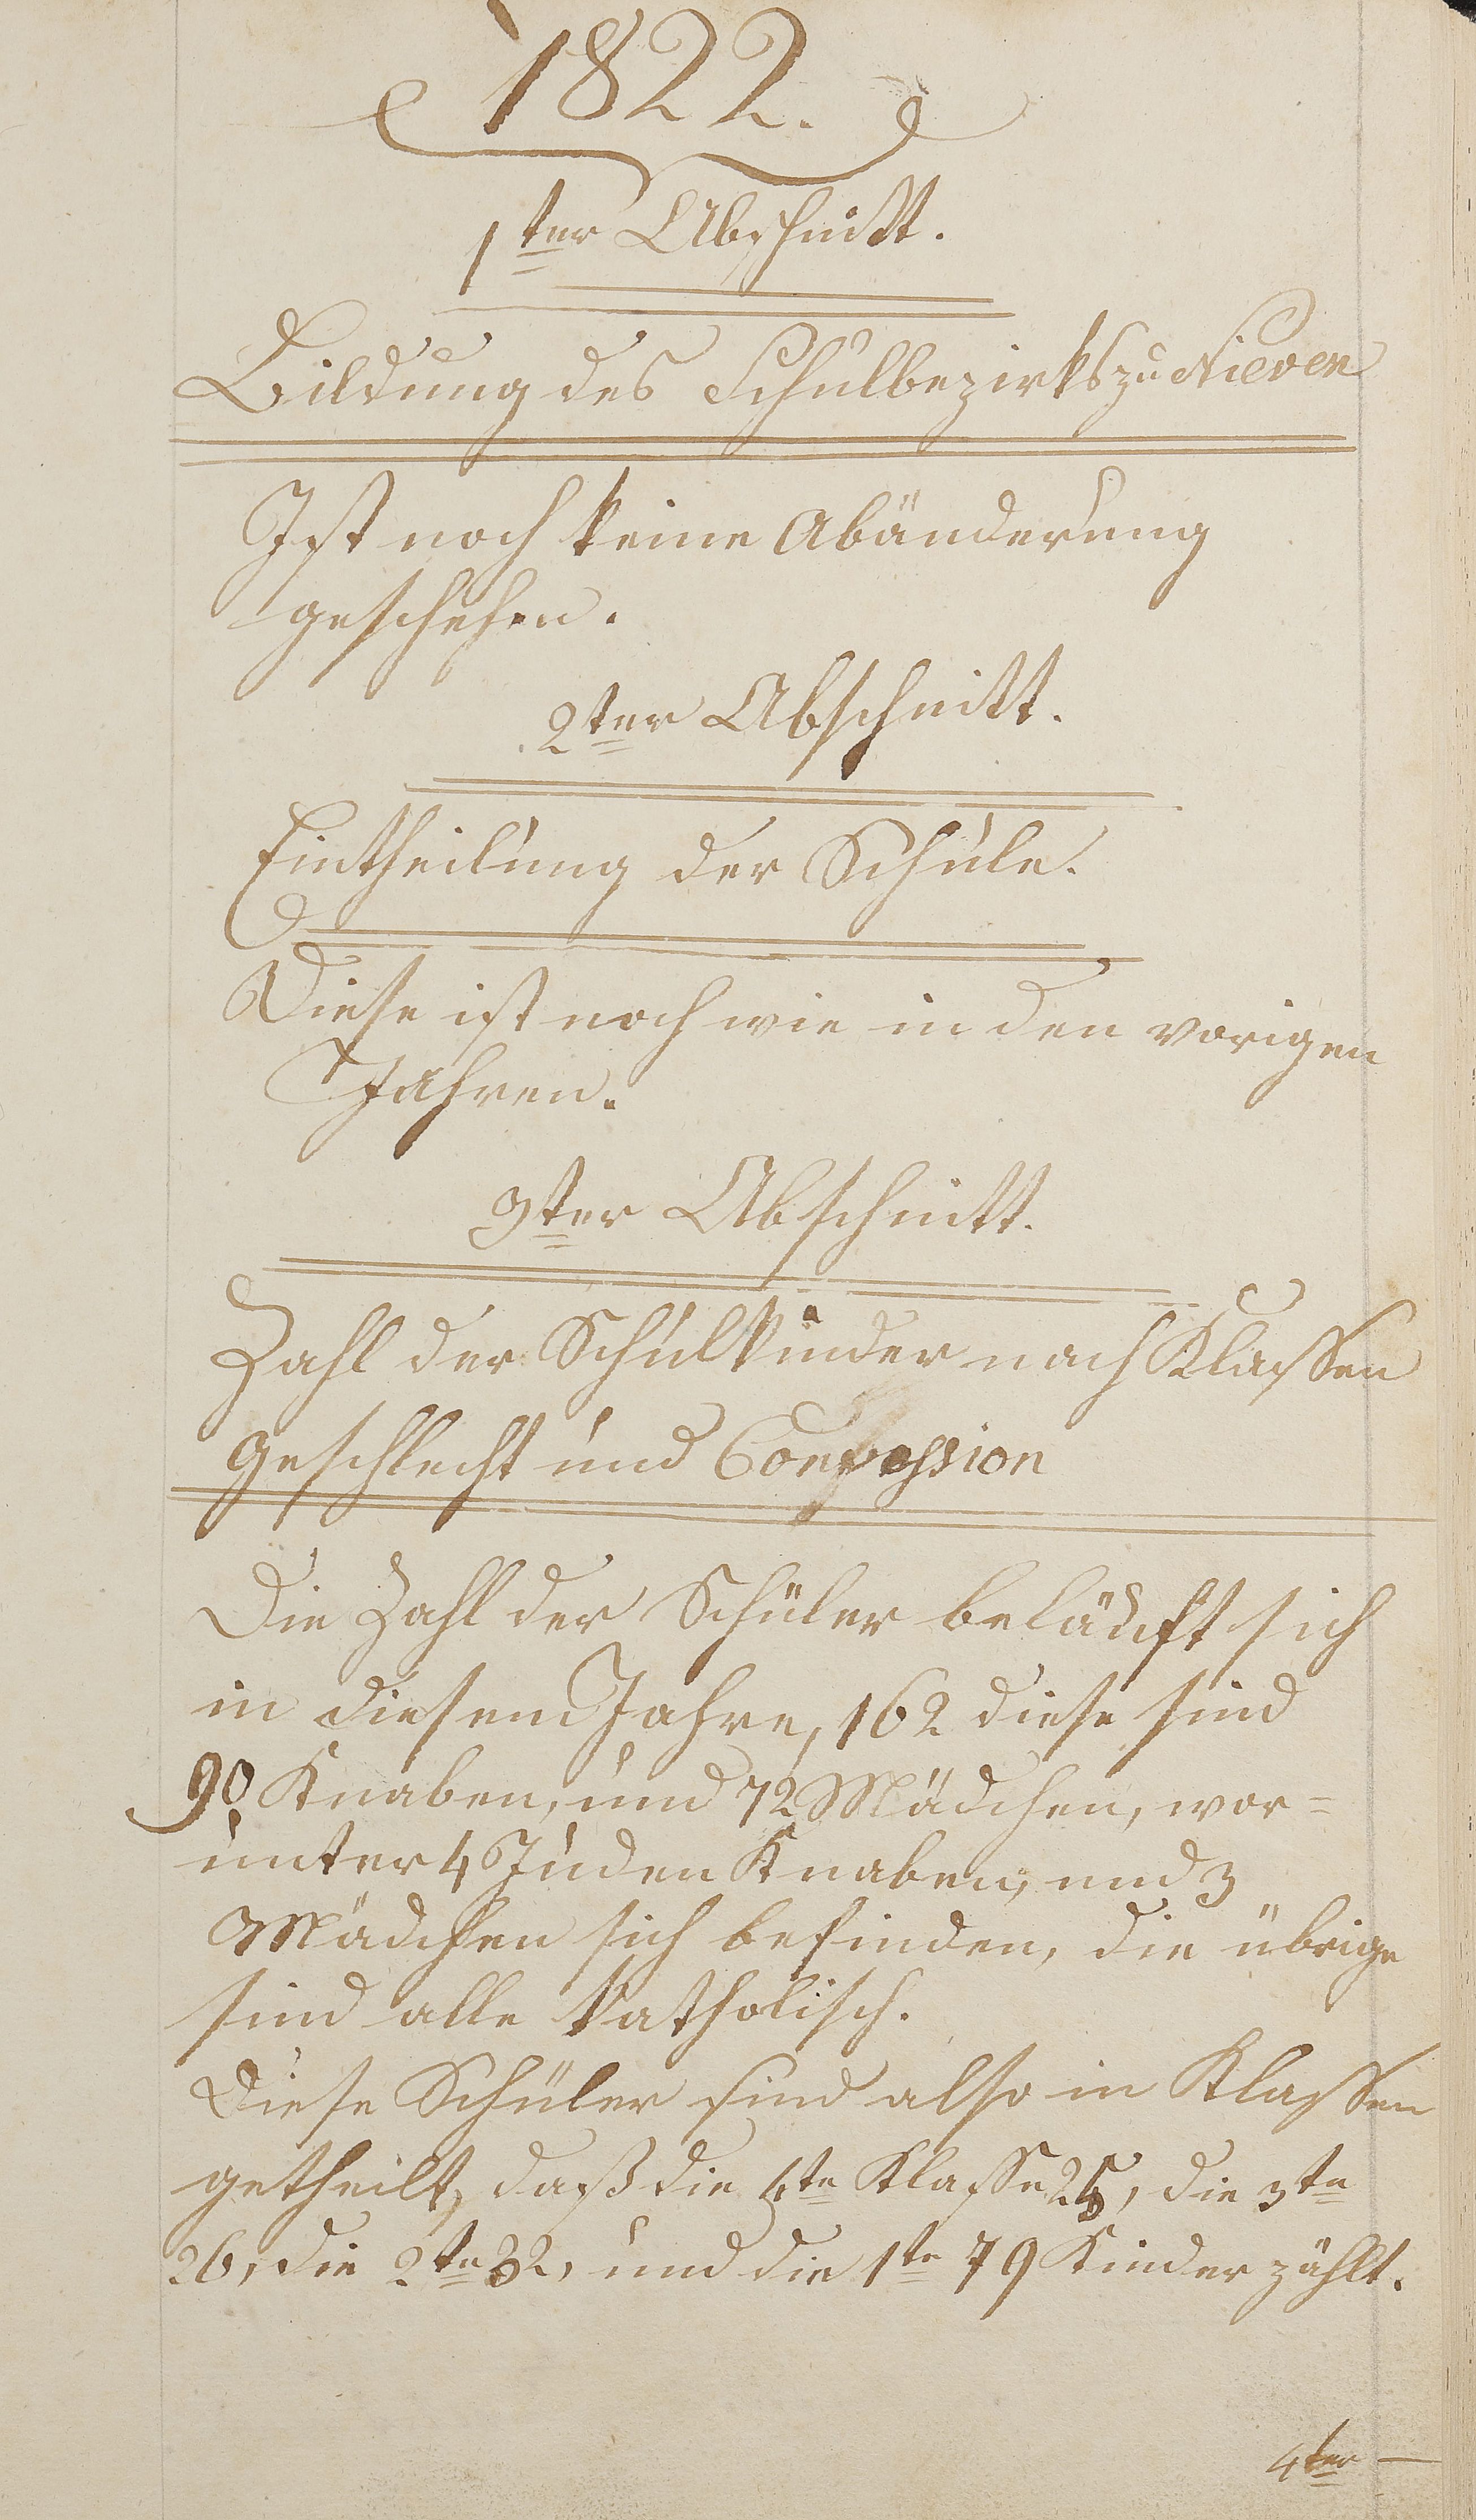 1822.
1ter Abschnitt.
Bildung des Schulbezirks zu Nieven
Ist noch keine Abänderung
geschehen.
2ter Abschnitt.
Eintheilung der Schule.
Diese ist noch wie in den vorigen
Jahren.
3ter Abschnitt.
Zahl der Schulkinder nach Klassen
geschlecht und Confession
Die Zahl der Schüler beläuft sich
in diesem Jahre, 162 diese sind
90 Knaben, und 72 Mädchen, wor=
unter 4 Juden Knaben, und 3
Mädchen sich befinden, die übrige
sind alle katholisch.
Diese Schüler sind also in Klassen
getheilt, daß die 4te Klasse 25, die 3te
26, die 2te 32, und die 1te 79 Kinder zählt.
4ter